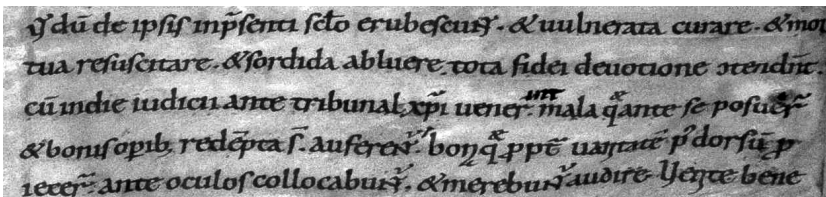 qd dū de ipsis inp̄senti sc̄lo erubescunt. & uulnerata curare. & mor
tua resuscitare. & sordida abluere. tota fidei deuotione ɔtendūt.
cū indie iudicii ante tribunal xp̄i uener̄. mala q̄ ante se posuer̄
& bonis opib; redēpta s̄. auferent᷑. bona q̄ ꝓpt̄ uanitatē p᷑ dorsū ꝓ
iecer̄. ante oculos collocabunt᷑. & merebunt᷑ audire. Uenite bene